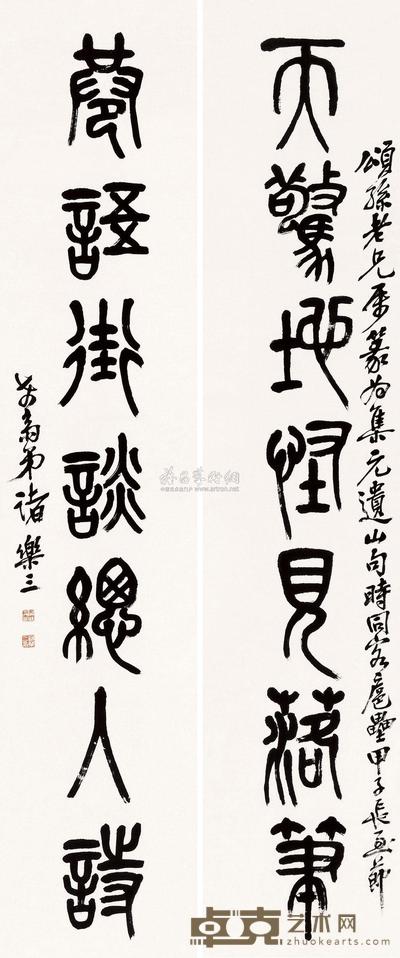 頌孫老兄屬篆為集元遺山句時同客扈壘甲子長至節
天驚地怪見落筆
巷語街談總入詩
弟諸樂三
卓克艺术网
zhuokearts.com